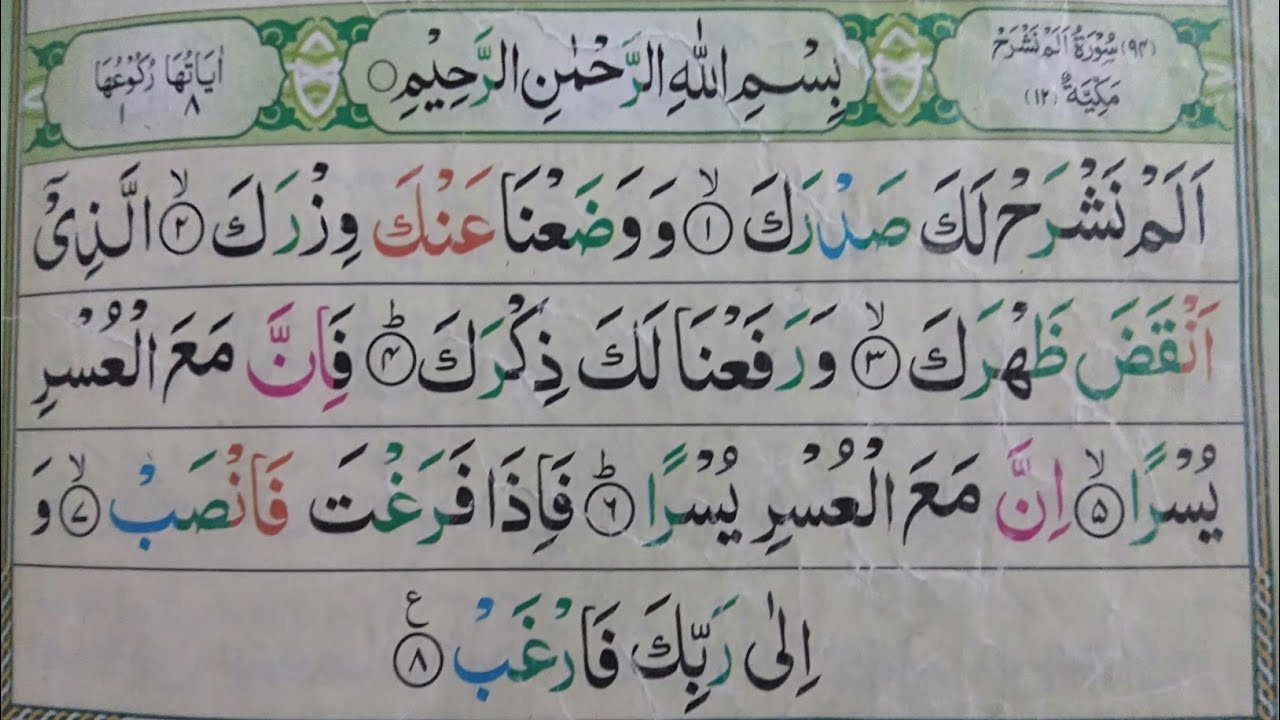 (٩٤) سُوْرَةُ اَلَمْ نَشْرَحْ
مَكِّيَّةٌ (١٢)
بِسْمِ اللّٰهِ الرَّحْمٰنِ الرَّحِيْمِ○
اٰيَاتُهَا رُكُوْعُهَا
٨ ١
اَلَمْ نَشْرَحْ لَكَ صَدْرَكَ ۙ﴿١﴾ وَوَضَعْنَا عَنْكَ وِزْرَكَ ۙ﴿٢﴾ الَّذِيْۤ
اَنْقَضَ ظَهْرَكَ ۙ﴿٣﴾ وَرَفَعْنَا لَكَ ذِكْرَكَ ؕ﴿٤﴾ فَاِنَّ مَعَ الْعُسْرِ
يُسْرًا ۙ﴿٥﴾ اِنَّ مَعَ الْعُسْرِ يُسْرًا ؕ﴿٦﴾ فَاِذَا فَرَغْتَ فَانْصَبْ ۙ﴿٧﴾ وَ
اِلٰى رَبِّكَ فَارْغَبْ ﴿٨﴾ ع